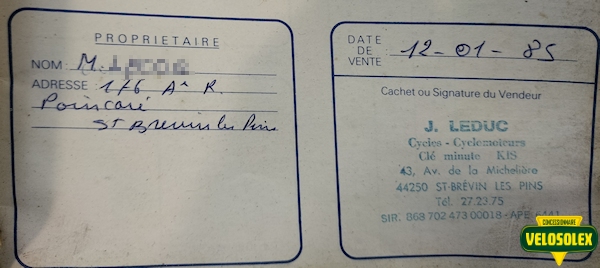 PROPRIETAIRE
NOM: M.
ADRESSE: 176 Av R.
Poincaré
St Brevin les Pins
DATE
DE
VENTE: 12-01-85
Cachet ou Signature du Vendeur
J. LEDUC
Cycles - Cyclomoteurs
Clé minute KIS
43, Av. de la Michelière
44250 ST-BRÉVIN LES PINS
Tél. 27.23.75
SIR. 868 702 473 00018 - APE
CONCESSIONNAIRE
VELOSOLEX